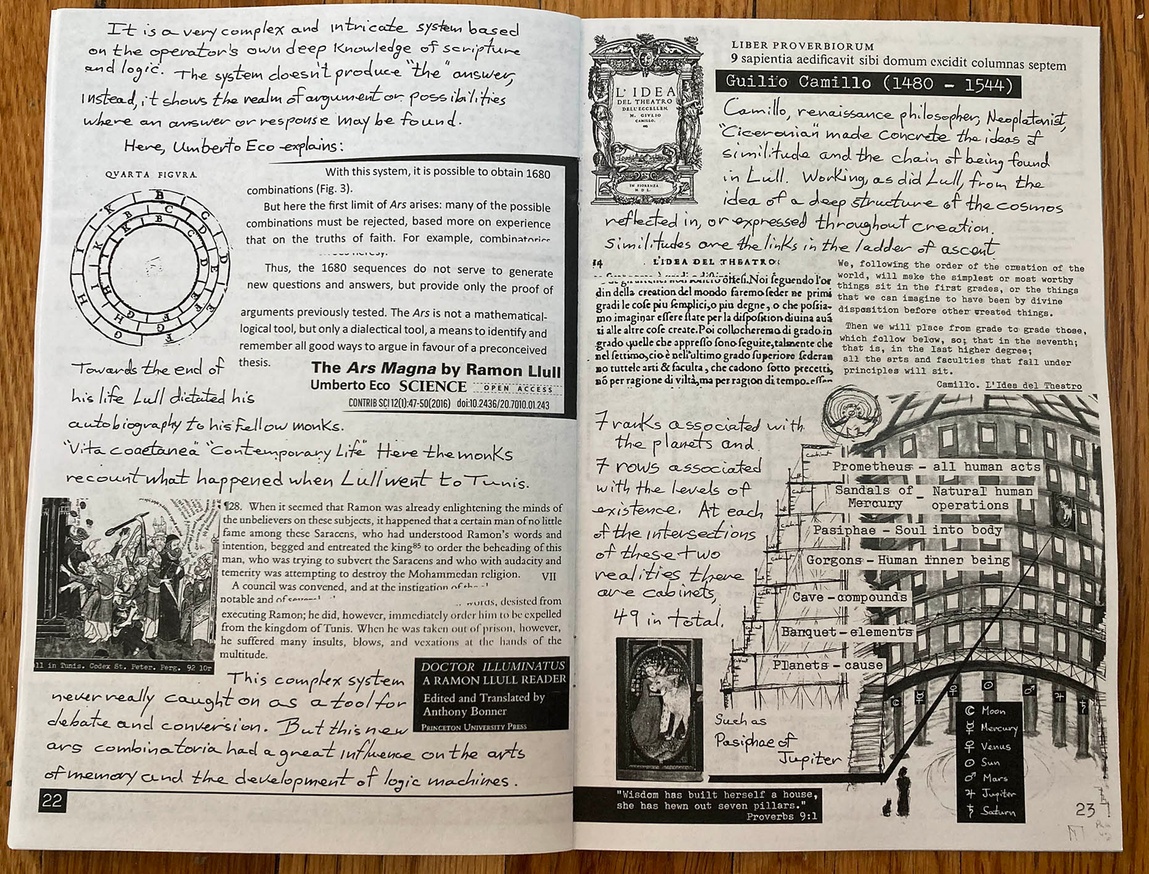 It is a very complex and intricate system based
on the operator's own deep knowledge of scripture
and logic. The system doesn't produce "the" answer,
instead, it shows the realm of argument or possibilities
where an answer or response may be found.
Here, Umberto Eco explains:
QVARTA FIGVRA.
With this system, it is possible to obtain 1680
combinations (Fig. 3).
But here the first limit of Ars arises: many of the possible
combinations must be rejected, based more on experience
that on the truths of faith. For example, combinatories
Thus, the 1680 sequences do not serve to generate
new questions and answers, but provide only the proof of
arguments previously tested. The Ars is not a mathematical-
logical tool, but only a dialectical tool, a means to identify and
remember all good ways to argue in favour of a preconceived
thesis.
The Ars Magna by Ramon Llull
Umberto Eco SCIENCE OPEN ACCESS
CONTRIB SCI 12(1):47-50(2016) doi:10.2436/20.7010.01.243
Towards the end of
his life Lull dictated his
autobiography to his fellow monks.
"Vita coaetanea" "Contemporary Life" Here the monks
recount what happened when Lull went to Tunis.
¶28. When it seemed that Ramon was already enlightening the minds of
the unbelievers on these subjects, it happened that a certain man of no little
fame among these Saracens, who had understood Ramon's words and
intention, begged and entreated the king85 to order the beheading of this
man, who was trying to subvert the Saracens and who with audacity and
temerity was attempting to destroy the Mohammedan religion. VII
A council was convened, and at the instigation of
notable and of several
words, desisted from
executing Ramon; he did, however, immediately order him to be expelled
from the kingdom of Tunis. When he was taken out of prison, however,
he suffered many insults, blows, and vexations at the hands of the
multitude.
ll in Tunis. Codex St. Peter. Perg. 92 10r
DOCTOR ILLUMINATUS
A RAMON LLULL READER
Edited and Translated by
Anthony Bonner
PRINCETON UNIVERSITY PRESS
This complex system
never really caught on as a tool for
debate and conversion. But this new
ars combinatoria had a great influence on the arts
of memory and the development of logic machines.
22
L'IDEA
DEL THEATRO
DELL'ECCELLEN.
M. GIVLIO
CAMILLO.
IN FIORENZA
M D L.
LIBER PROVERBIORUM
9 sapientia aedificavit sibi domum excidit columnas septem
Guilio Camillo (1480 - 1544)
Camillo, renaissance philosopher, Neoplatonist,
"Ciceronian" made concrete the ideas of
similitude and the chain of being found
in Lull. Working, as did Lull, from the
idea of a deep structure of the cosmos
reflected in, or expressed throughout creation.
Similitudes are the links in the ladder of ascent
14 L'IDEA DEL THEATRO
Noi seguendo l'or
din della creation del mondo faremo seder ne primi
gradi le cose piu semplici, o piu degne, o che possia-
mo imaginar essere state per la disposition diuina auā
ti alle altre cose create. Poi collocheremo di grado in
grado quelle che appresso sono seguite, talmente che
nel settimo, cio è nell'ultimo grado superiore sederan
no tuttele arti & faculta, che cadono sotto precetti,
nō per ragione di viltà, ma per ragion di tempo.
We, following the order of the creation of the
world, will make the simplest or most worthy
things sit in the first grades, or the things
that we can imagine to have been by divine
disposition before other created things.
Then we will place from grade to grade those,
which follow below, so; that in the seventh;
that is, in the last higher degree;
all the arts and faculties that fall under
principles will sit.
Camillo. L'Idea del Theatro
7 ranks associated with
the planets and
7 rows associated
with the levels of
existence. At each
of the intersections
of these two
realities there
are cabinets,
49 in total.
Prometheus - all human acts
Sandals of Mercury - Natural human operations
Pasiphae - Soul into body
Gorgons - Human inner being
Cave - compounds
Banquet - elements
Planets - cause
Such as
Pasiphae of
Jupiter
☾ Moon
☿ Mercury
♀ Venus
☉ Sun
♂ Mars
♃ Jupiter
♄ Saturn
"Wisdom has built herself a house,
she has hewn out seven pillars."
Proverbs 9:1
23